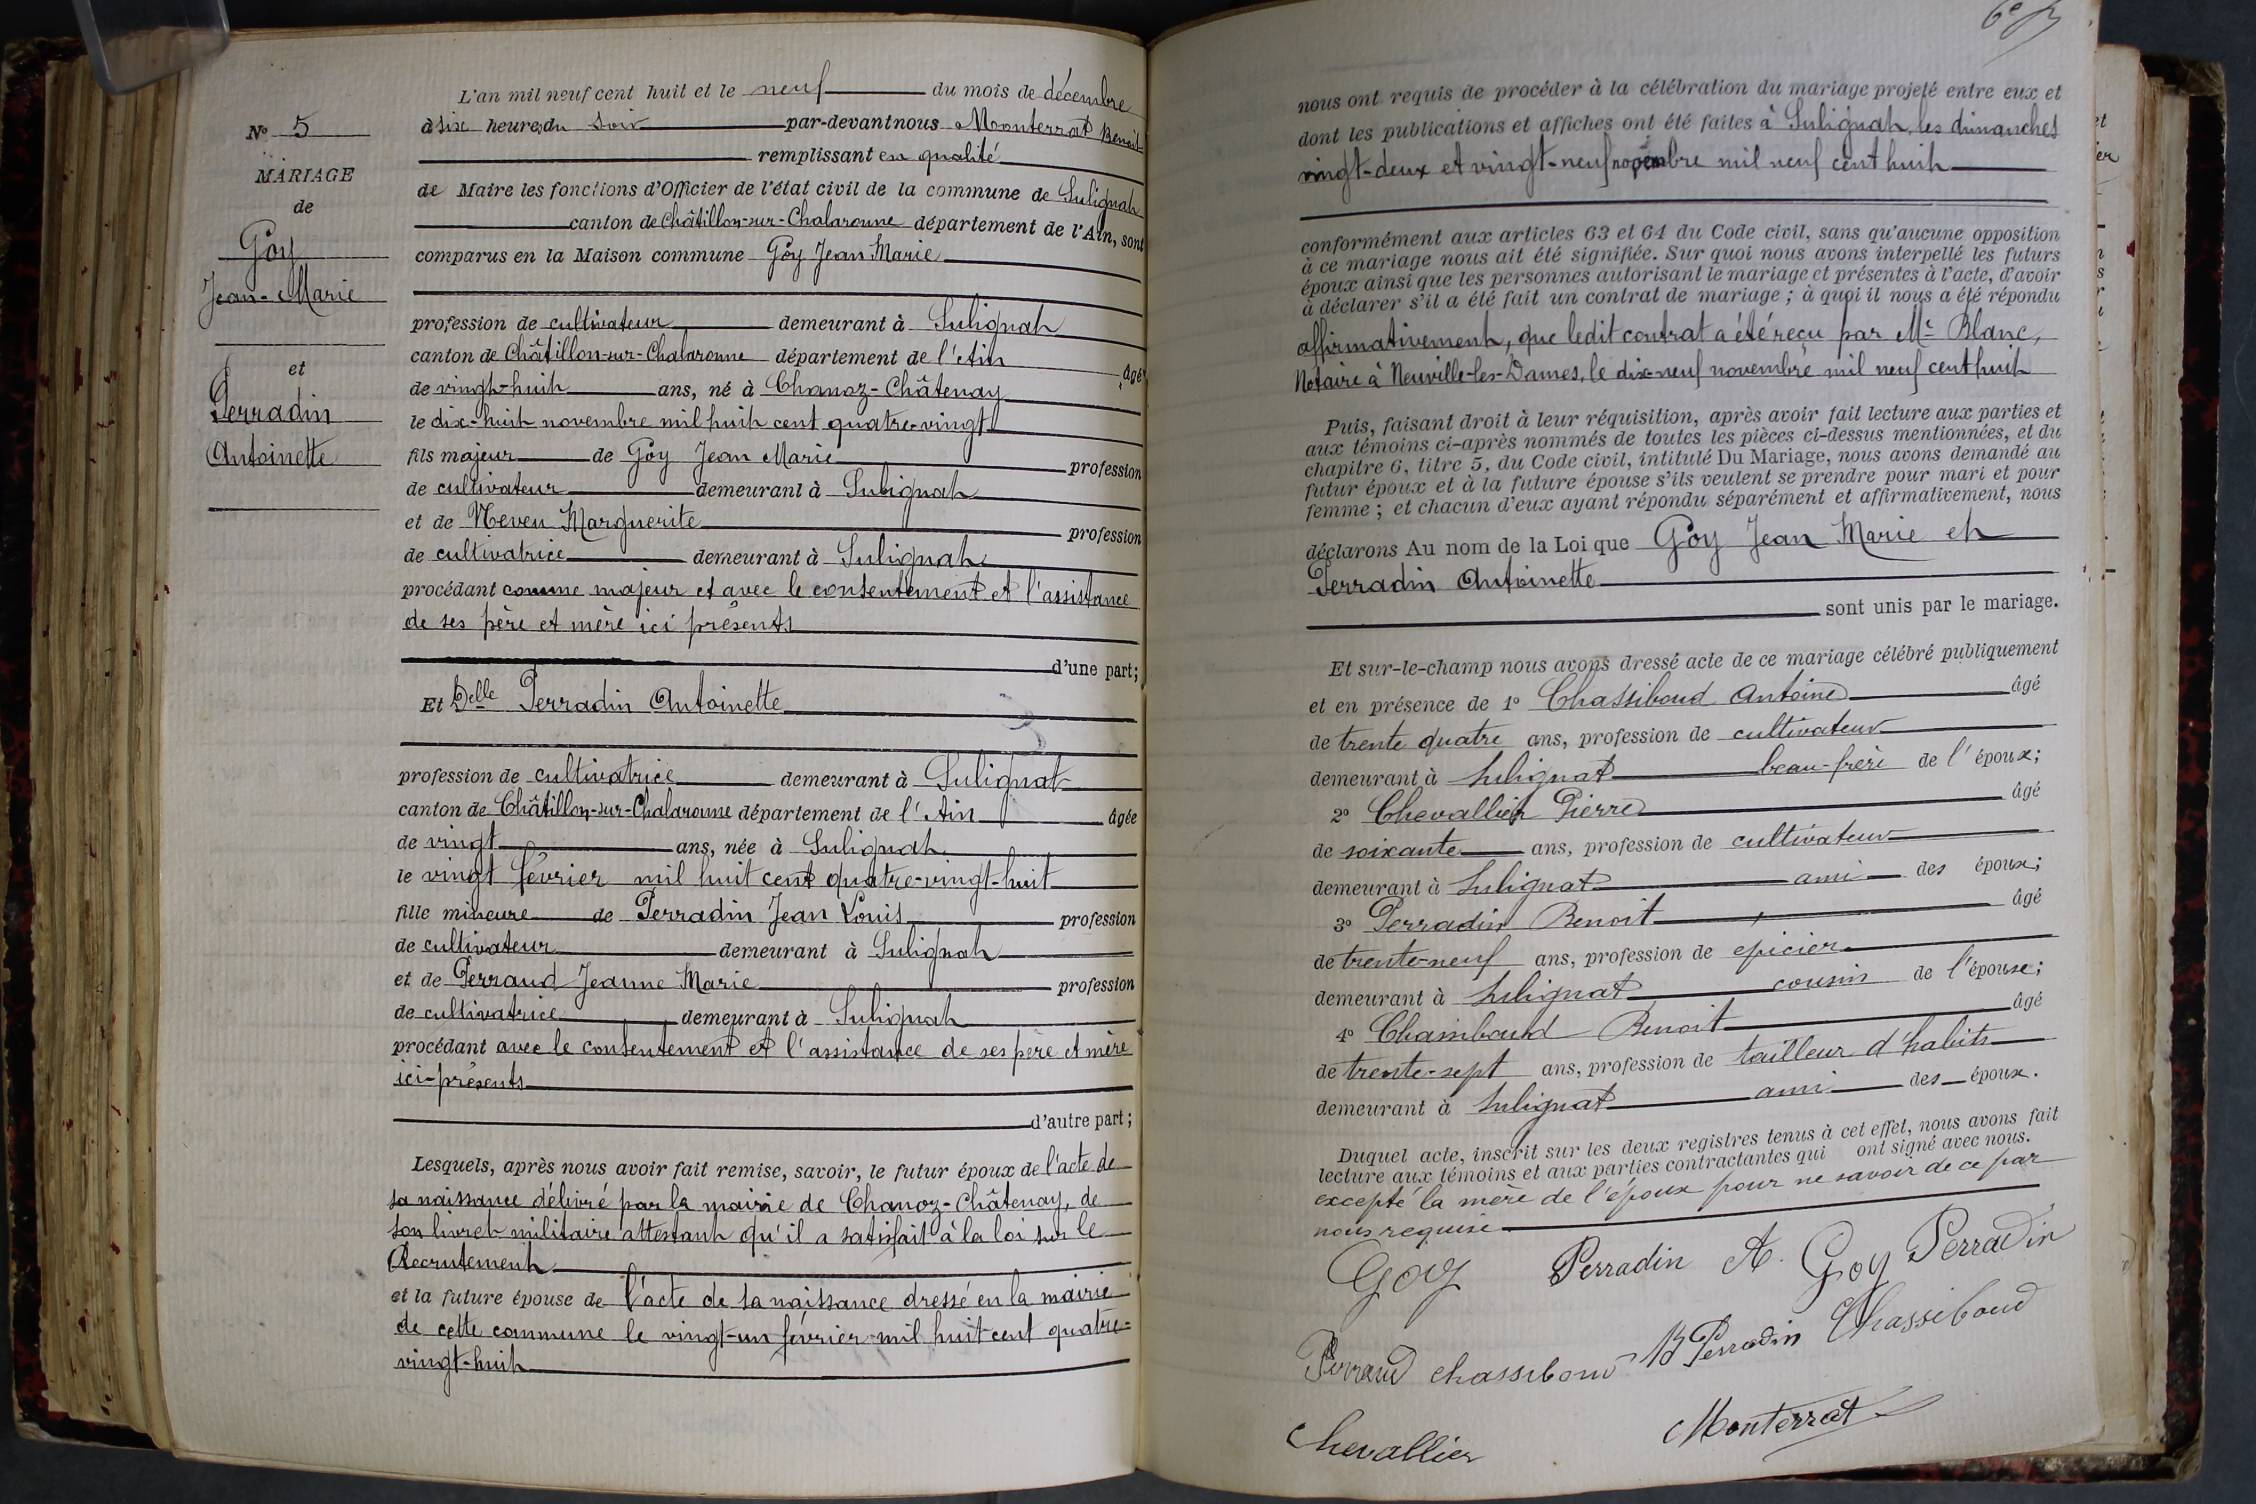 N° 5
MARIAGE
de
Goy
Jean-Marie
et
Perradin
Antoinette
L'an mil neuf cent huit et le neuf du mois de décembre
à six heures du soir par-devant nous Monterrat Benoit
remplissant en qualité
de Maire les fonctions d'Officier de l'état civil de la commune de Sulignat
canton de Châtillon-sur-Chalaronne département de l'Ain, sont
comparus en la Maison commune Goy Jean Marie
profession de cultivateur demeurant à Sulignat
canton de Châtillon-sur-Chalaronne département de l'Ain âgé
de vingt-huit ans, né à Chanoz-Châtenay
le dix-huit novembre mil huit cent quatre-vingt
fils majeur de Goy Jean Marie profession
de cultivateur demeurant à Sulignat
et de Neveu Marguerite profession
de cultivatrice demeurant à Sulignat
procédant comme majeur et avec le consentement et l'assistance
de ses père et mère ici présents
d'une part;
Et Delle Perradin Antoinette
profession de cultivatrice demeurant à Sulignat
canton de Châtillon-sur-Chalaronne département de l'Ain âgée
de vingt ans, née à Sulignat
le vingt février mil huit cent quatre-vingt-huit
fille mineure de Perradin Jean Louis profession
de cultivateur demeurant à Sulignat
et de Perraud Jeanne Marie profession
de cultivatrice demeurant à Sulignat
procédant avec le consentement et l'assistance de ses père et mère
ici-présents
d'autre part;
Lesquels, après nous avoir fait remise, savoir, le futur époux de l'acte de
sa naissance délivré par la mairie de Chanoz-Châtenay, de
son livret militaire attestant qu'il a satisfait à la loi sur le
Recrutement
et la future épouse de l'acte de sa naissance dressé en la mairie
de cette commune le vingt-un février mil huit cent quatre-
vingt-huit
nous ont requis de procéder à la célébration du mariage projeté entre eux et
dont les publications et affiches ont été faites à Sulignat, les dimanches
vingt-deux et vingt-neuf novembre mil neuf cent huit
conformément aux articles 63 et 64 du Code civil, sans qu'aucune opposition
à ce mariage nous ait été signifiée. Sur quoi nous avons interpellé les futurs
époux ainsi que les personnes autorisant le mariage et présentes à l'acte, d'avoir
à déclarer s'il a été fait un contrat de mariage; à quoi il nous a été répondu
affirmativement, que ledit contrat a été reçu par Me Blanc,
Notaire à Neuville-les-Dames, le dix-neuf novembre mil neuf cent huit
Puis, faisant droit à leur réquisition, après avoir fait lecture aux parties et
aux témoins ci-après nommés de toutes les pièces ci-dessus mentionnées, et du
chapitre 6, titre 5, du Code civil, intitulé Du Mariage, nous avons demandé au
futur époux et à la future épouse s'ils veulent se prendre pour mari et pour
femme; et chacun d'eux ayant répondu séparément et affirmativement, nous
déclarons Au nom de la Loi que Goy Jean Marie et
Perradin Antoinette
sont unis par le mariage.
Et sur-le-champ nous avons dressé acte de ce mariage célébré publiquement
et en présence de 1° Chassiboud Antoine âgé
de trente quatre ans, profession de cultivateur
demeurant à Sulignat beau-frère de l'époux;
2° Chevallier Pierre âgé
de soixante ans, profession de cultivateur
demeurant à Sulignat ami des époux;
3° Perradin Benoit âgé
de trente-neuf ans, profession de epicier
demeurant à Sulignat cousin de l'épouse;
4° Chambaud Benoit âgé
de trente-sept ans, profession de tailleur d'habits
demeurant à Sulignat ami des époux.
Duquel acte, inscrit sur les deux registres tenus à cet effet, nous avons fait
lecture aux témoins et aux parties contractantes qui ont signé avec nous.
excepté la mère de l'époux pour ne savoir de ce par
nous requise
Goy Perradin A. Goy Perradin
Perraud Chassiboud B Perradin Chassiboud
Chevallier Monterrat